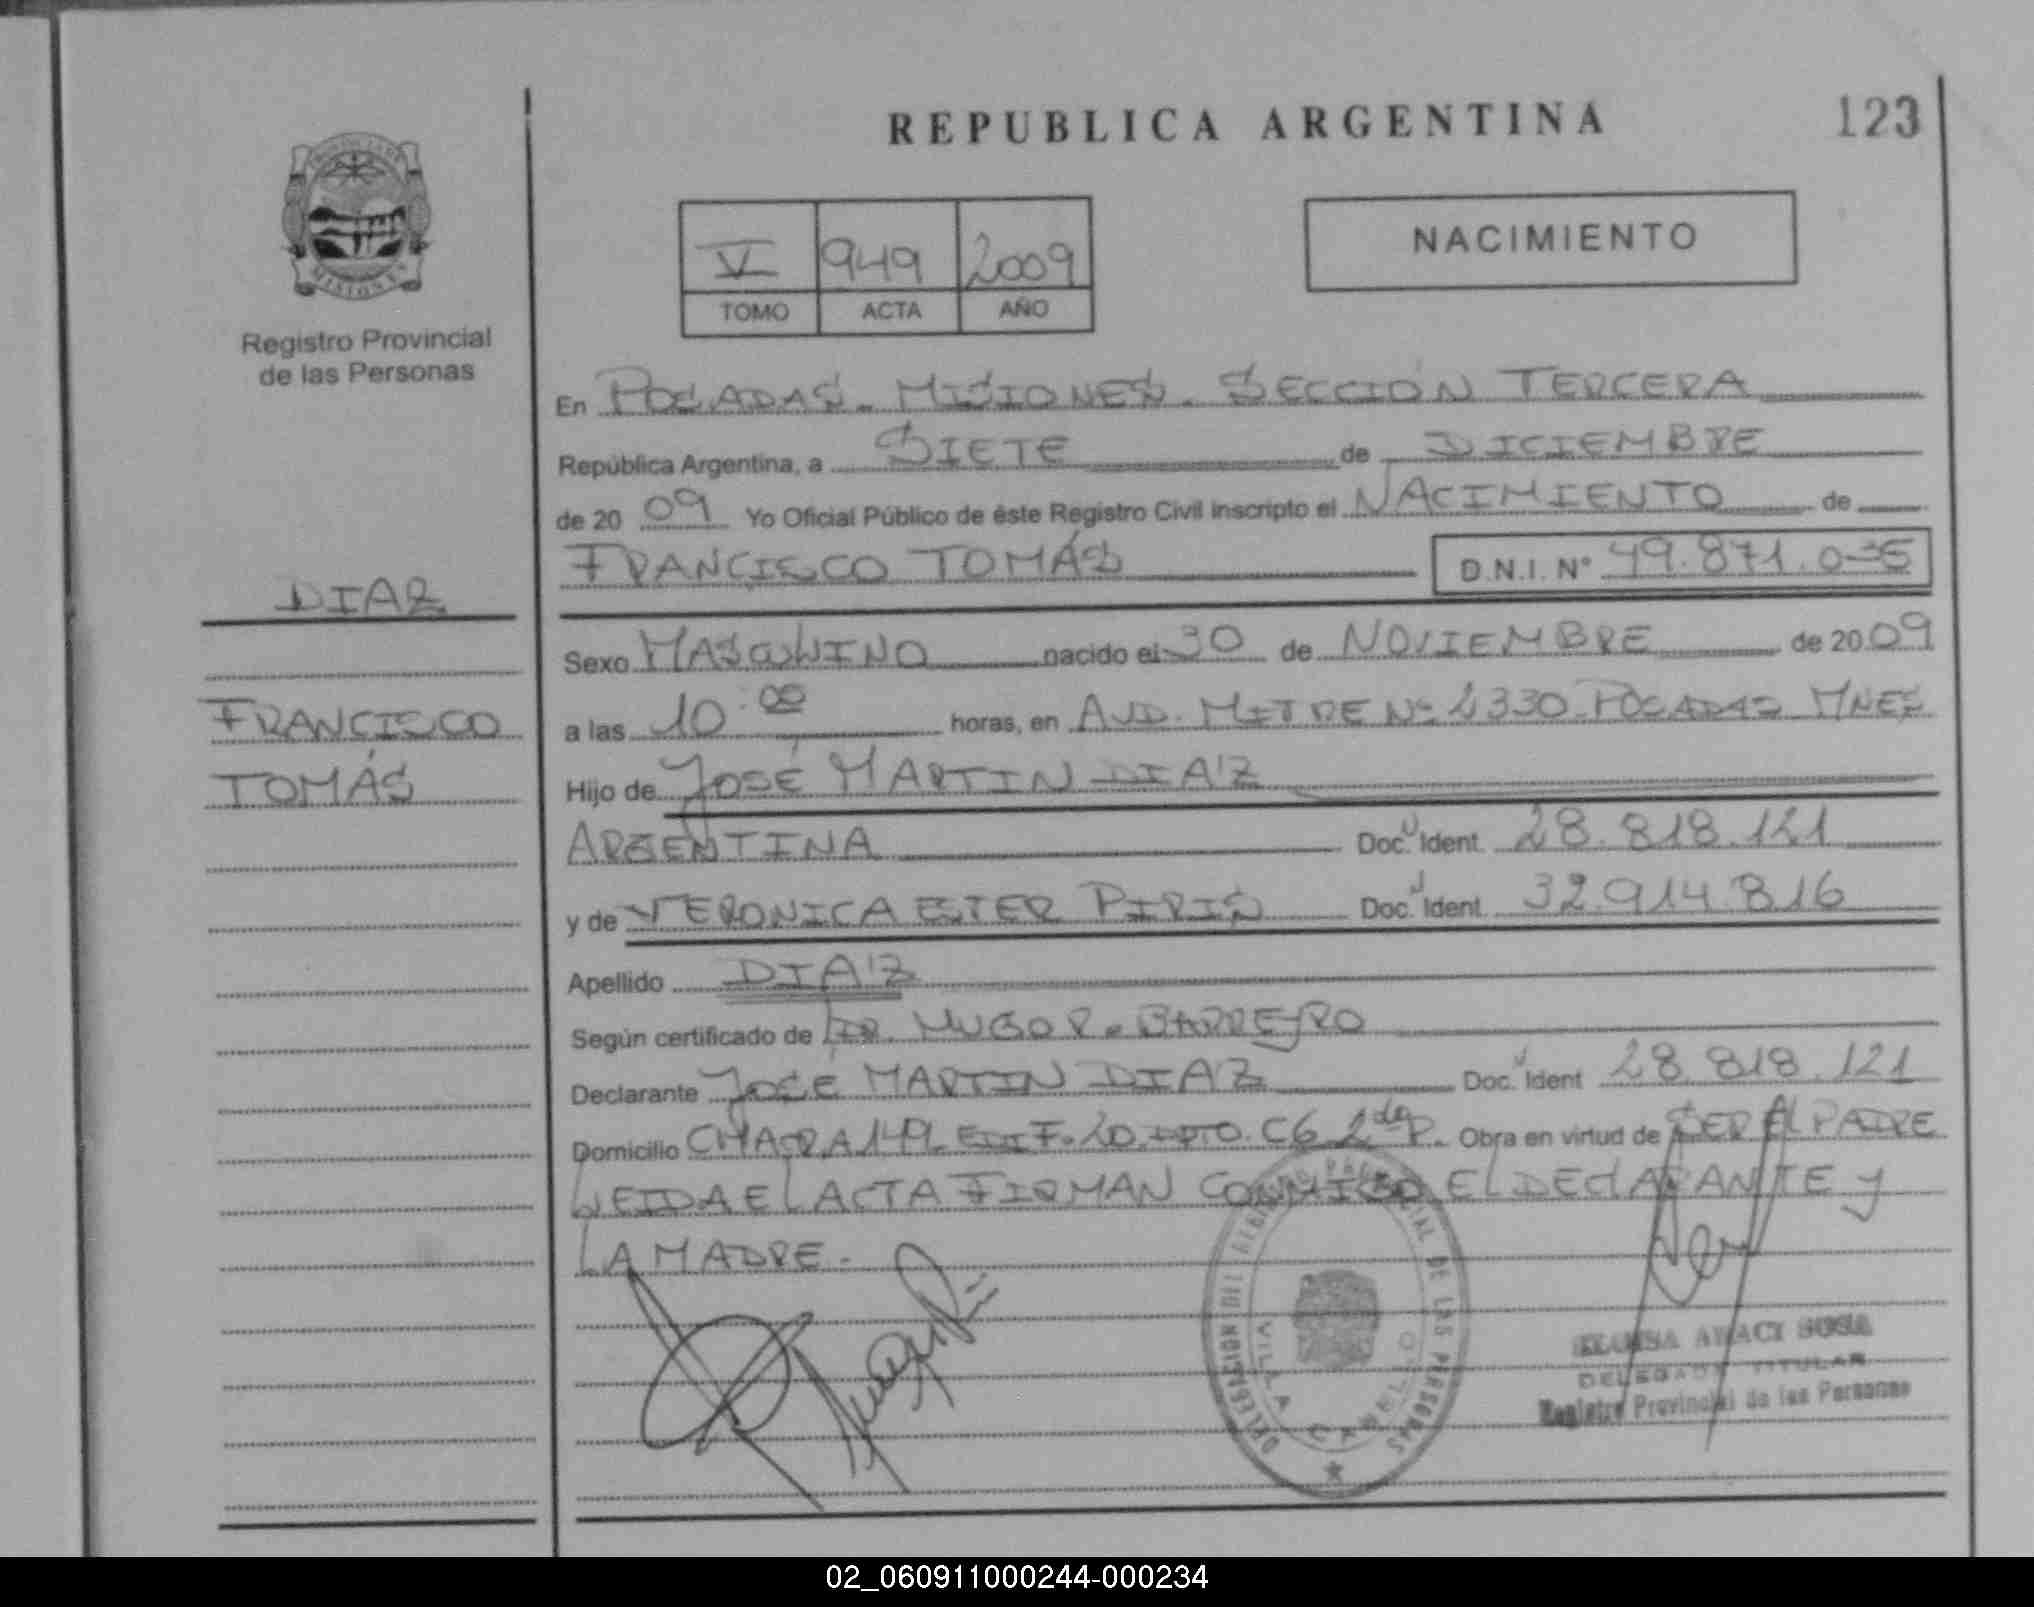 REPUBLICA ARGENTINA
123
V 949 2009
TOMO ACTA AÑO
NACIMIENTO
Registro Provincial
de las Personas
En POSADAS. MISIONES. SECCIÓN TERCERA
República Argentina, a SIETE de DICIEMBRE
de 20 09 Yo Oficial Público de éste Registro Civil inscripto el NACIMIENTO de
FRANCISCO TOMÁS D.N.I. Nº 49.871.0
DIAZ
FRANCISCO
TOMÁS
Sexo MASCULINO nacido el 30 de NOVIEMBRE de 20 09
a las 10:00 horas, en AVD. MITRE Nº 2330 POSADAS MNES
Hijo de JOSÉ MARTIN DIAZ
ARGENTINA Doc. Ident. 28.818.121
y de VERONICA ESTER PIRIS Doc. Ident. 32.914.816
Apellido DIAZ
Según certificado de DR. HUGO R. BARREYRO
Declarante JOSÉ MARTIN DIAZ Doc. Ident 28.818.121
Domicilio CHACRA 149. EDIF. 20 DPTO. C6 2do P. Obra en virtud de SER EL PADRE
LEIDA EL ACTA FIRMAN CONMIGO EL DECLARANTE y
LA MADRE.
DELEGACION DEL REGISTRO PROVINCIAL DE LAS PERSONAS
VILLA CABELLO
ARACI SOSA
DELEGADA TITULAR
Registro Provincial de las Personas
02_060911000244-000234